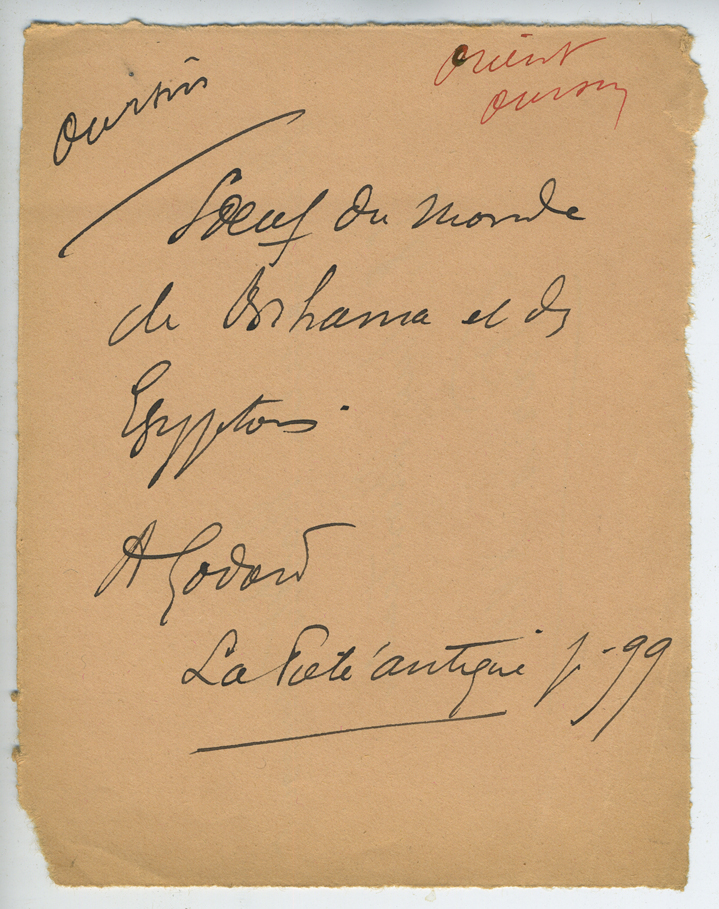 Oursins
Orient
oursin
L'oeuf du monde
de Brhama et des
Egyptiens.
A Godard
La Piété antique p. 99